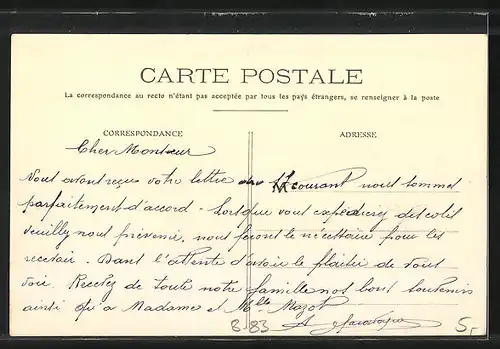 CARTE POSTALE
La correspondance au recto n'étant pas acceptée par tous les pays étrangers, se renseigner à la poste
CORRESPONDANCE
ADRESSE
Cher Monsieur
Vous avons reçu votre lettre du courant nous sommes
parfaitement d'accord. Lorsque vous expédierez dit colis
veuillez nous prévenir, nous ferons le nécessaire pour les
recevoir. Dans l'attente d'avoir le plaisir de vous
voir. Recevez de toute notre famille nos bons souvenirs
ainsi qu'à Madame et Mlle Mazot
B-83
5,-